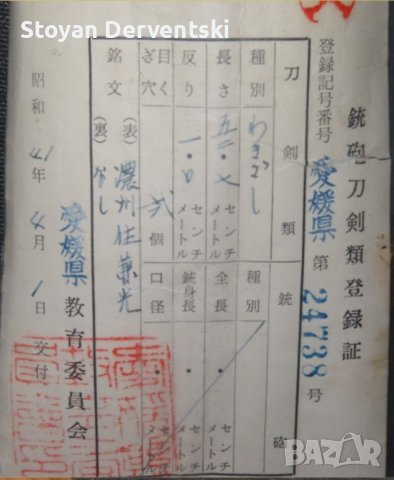 Stoyan Derventski
銃砲刀剣類登録証
登録記号番号 愛媛県 第 24738 号
刀剣類 銃砲
種別 わきざし 種別
長さ 五二・七 センチメートル 全長 ・ センチメートル
反り 一・〇 センチメートル 銃身長 ・ センチメートル
目くぎ穴 弐 個 口径 ・ センチメートル
銘文 (表) 濃州住兼光
(裏) なし
昭和 41年 4月 1日交付
愛媛県教育委員会
BAZAR
bg